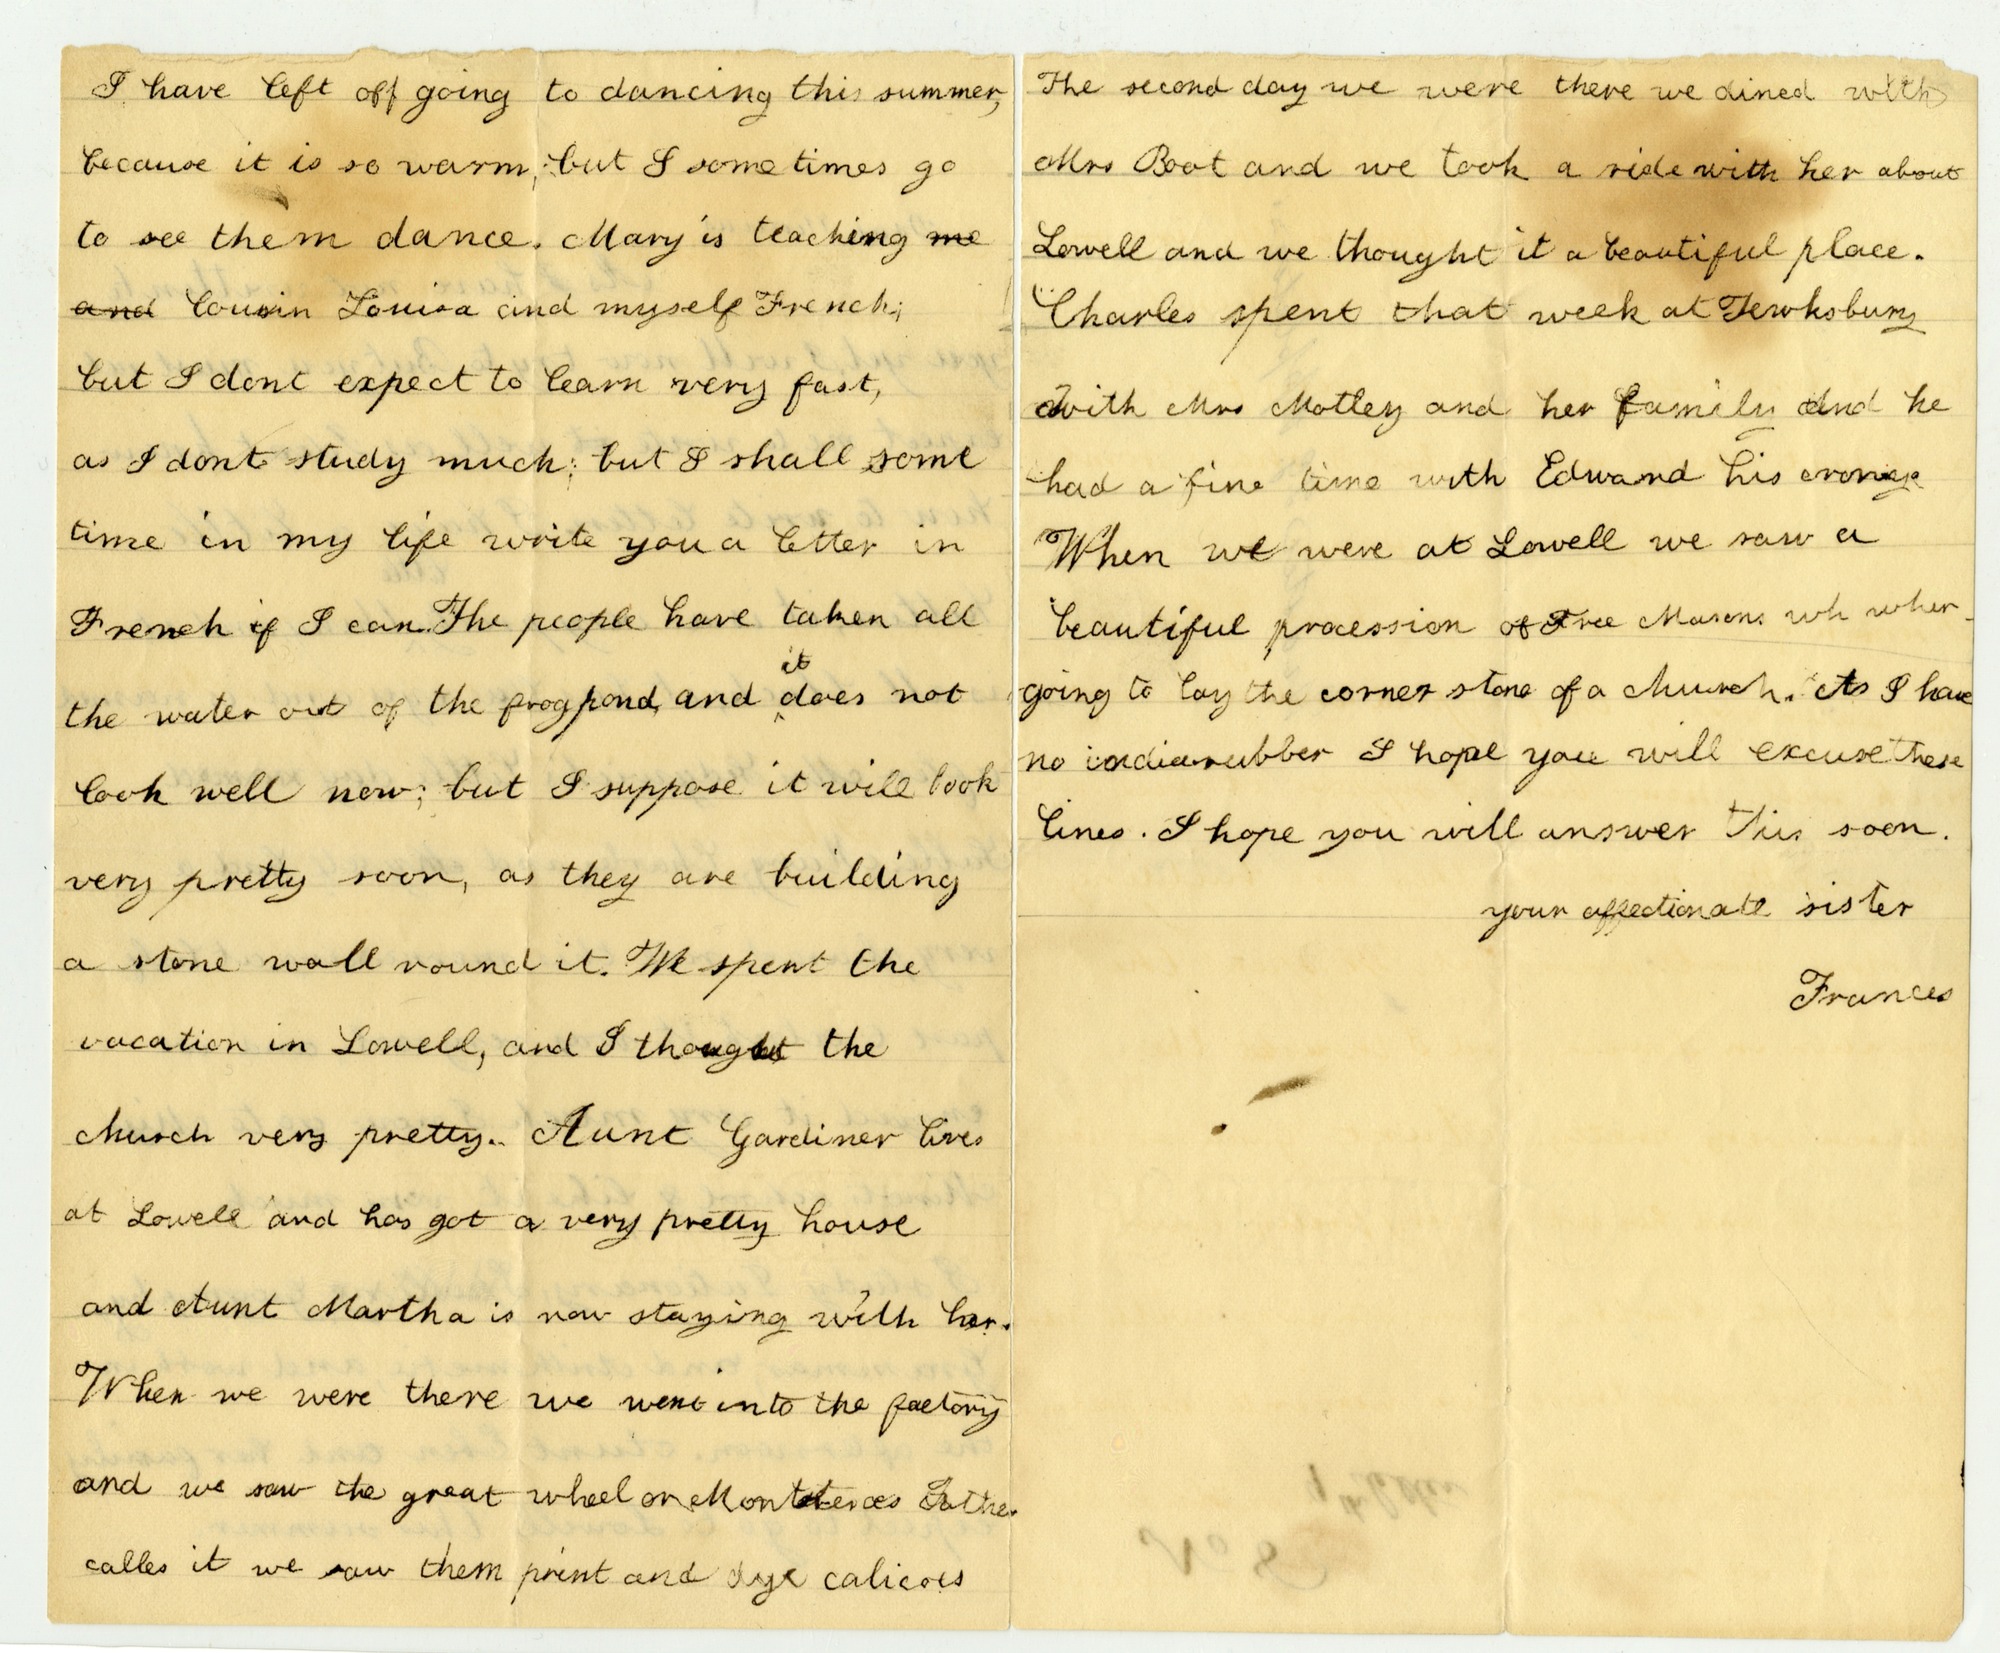 I have left off going to dancing this summer,
because it is so warm, but I sometimes go
to see them dance. Mary is teaching me
and Cousin Louisa and myself French;
but I dont expect to learn very fast,
as I dont study much; but I shall some
time in my life write you a letter in
French if I can. The people have taken all
it
the water out of the frog pond, and does not
look well now; but I suppose it will look
very pretty soon, as they are building
a stone wall round it. We spent the
vacation in Lowell, and I thought the
church very pretty. Aunt Gardiner lives
at Lowell and has got a very pretty house
and Aunt Martha is now staying with her.
When we were there we went into the factory
and we saw the great wheel or Father
calles it we saw them print and dye calicoes
The second day we were there we dined with
Mrs Boot and we took a ride with her about
Lowell and we thought it a beautiful place.
Charles spent that week at Tewksbury
with Mrs Motley and her family and he
had a fine time with Edward his crony
When we were at Lowell we saw a
beautiful procession of Free Masons wh wher
going to lay the corner stone of a church. As I have
no indiarubber I hope you will excuse these
lines. I hope you will answer this soon.
your affectionate sister
Frances